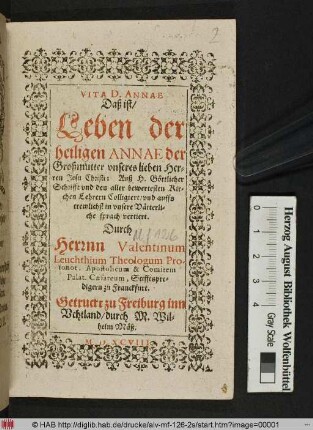 VITA D. ANNAE
Daß ist/
Leben der
heiligen ANNAE der
Großmutter vnseres lieben Her-
ren Jesu Christi: Auß H. Göttlicher
Schrifft vnd den aller bewertesten Kir-
chen Lehrern Colligiert: vnd auffs
trewlichst in vnsere Vätterli-
che sprach vertiert.
Durch
Herrnn Valentinum
Leuchthium Theologum Pro-
tonot. Apostolicum & Comitem
Palat. Caesareum, Stifftspre-
digern zu Franckfurt.
Getruckt zu Freiburg inn
Vchtland/durch M. Wil-
helm Mäß.
Herzog August Bibliothek Wolfenbüttel
Gray Scale
© HAB http://diglib.hab.de/drucke/aiv-mf-126-2s/start.htm?image=00001